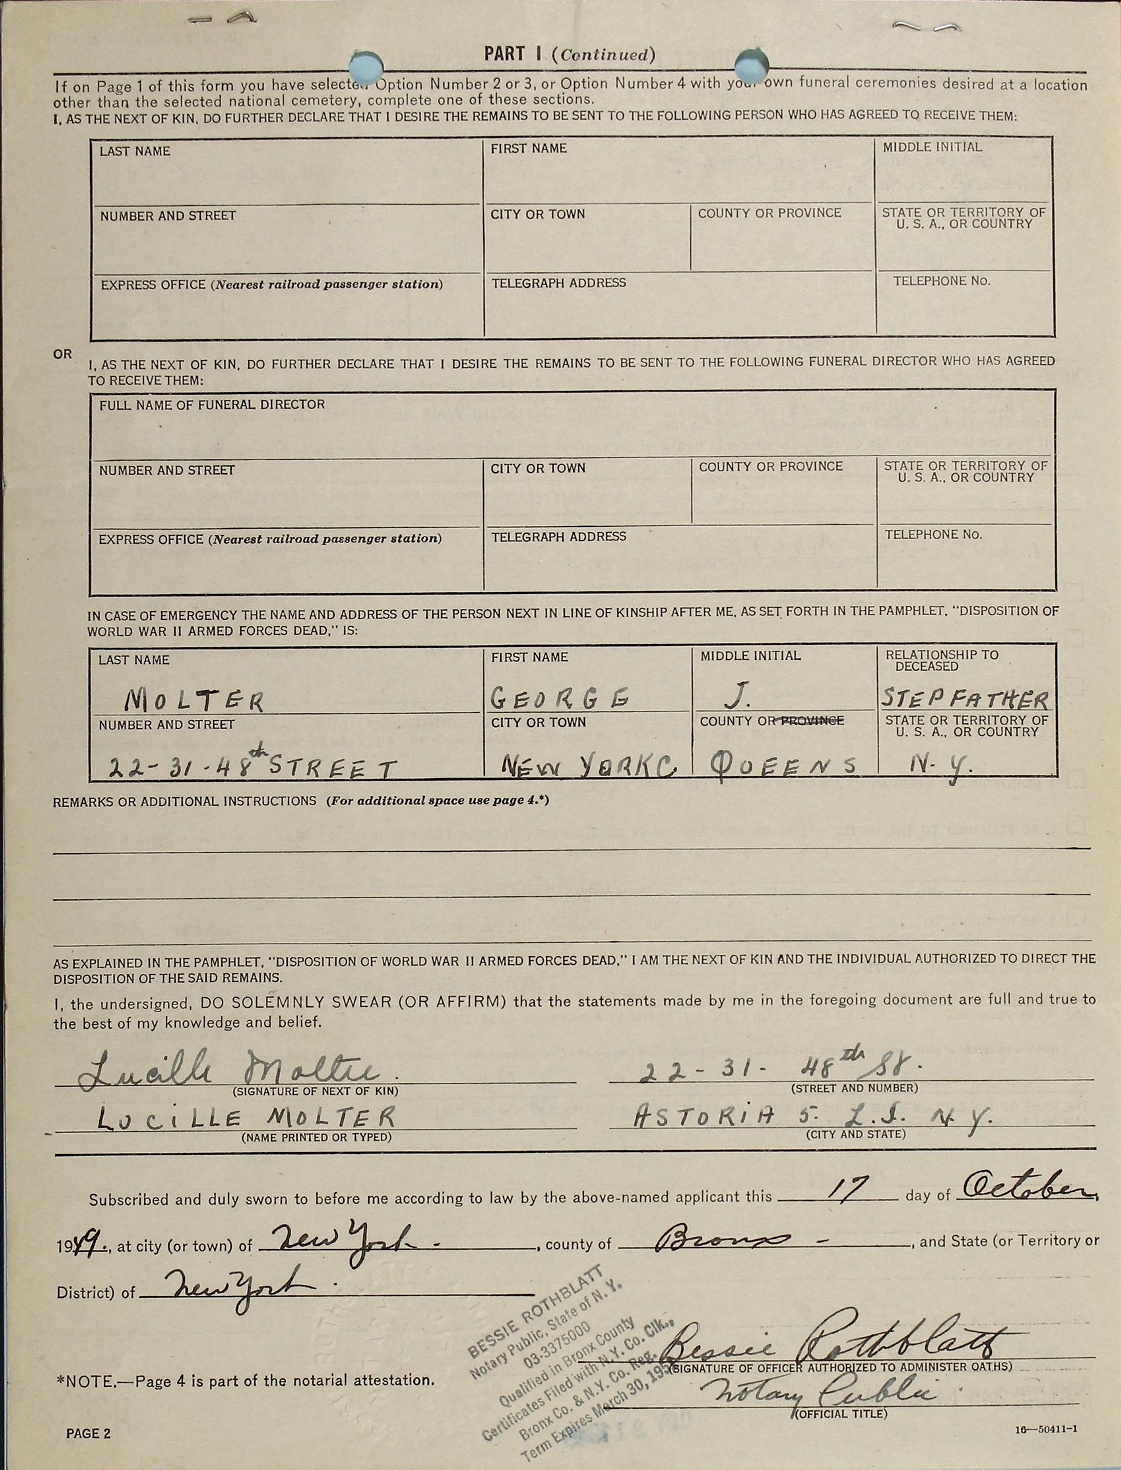 PART I (Continued)
If on Page 1 of this form you have selected Option Number 2 or 3, or Option Number 4 with your own funeral ceremonies desired at a location
other than the selected national cemetery, complete one of these sections.
I, AS THE NEXT OF KIN, DO FURTHER DECLARE THAT I DESIRE THE REMAINS TO BE SENT TO THE FOLLOWING PERSON WHO HAS AGREED TO RECEIVE THEM:
LAST NAME FIRST NAME MIDDLE INITIAL
NUMBER AND STREET CITY OR TOWN COUNTY OR PROVINCE STATE OR TERRITORY OF
U. S. A., OR COUNTRY
EXPRESS OFFICE (Nearest railroad passenger station) TELEGRAPH ADDRESS TELEPHONE No.
OR
I, AS THE NEXT OF KIN, DO FURTHER DECLARE THAT I DESIRE THE REMAINS TO BE SENT TO THE FOLLOWING FUNERAL DIRECTOR WHO HAS AGREED
TO RECEIVE THEM:
FULL NAME OF FUNERAL DIRECTOR
NUMBER AND STREET CITY OR TOWN COUNTY OR PROVINCE STATE OR TERRITORY OF
U. S. A., OR COUNTRY
EXPRESS OFFICE (Nearest railroad passenger station) TELEGRAPH ADDRESS TELEPHONE No.
IN CASE OF EMERGENCY THE NAME AND ADDRESS OF THE PERSON NEXT IN LINE OF KINSHIP AFTER ME, AS SET FORTH IN THE PAMPHLET, "DISPOSITION OF
WORLD WAR II ARMED FORCES DEAD," IS:
LAST NAME FIRST NAME MIDDLE INITIAL RELATIONSHIP TO
DECEASED
MOLTER GEORGE J. STEPFATHER
NUMBER AND STREET CITY OR TOWN COUNTY OR PROVINCE STATE OR TERRITORY OF
U. S. A., OR COUNTRY
22-31-48th STREET NEW YORK C QUEENS N.Y.
REMARKS OR ADDITIONAL INSTRUCTIONS (For additional space use page 4.*)
AS EXPLAINED IN THE PAMPHLET, "DISPOSITION OF WORLD WAR II ARMED FORCES DEAD," I AM THE NEXT OF KIN AND THE INDIVIDUAL AUTHORIZED TO DIRECT THE
DISPOSITION OF THE SAID REMAINS.
I, the undersigned, DO SOLEMNLY SWEAR (OR AFFIRM) that the statements made by me in the foregoing document are full and true to
the best of my knowledge and belief.
Lucille Molter. 22-31- 48th St.
(SIGNATURE OF NEXT OF KIN) (STREET AND NUMBER)
LUCILLE MOLTER ASTORIA 5 L.I. N.Y.
(NAME PRINTED OR TYPED) (CITY AND STATE)
Subscribed and duly sworn to before me according to law by the above-named applicant this 17 day of October,
1949., at city (or town) of New York -, county of Bronx -, and State (or Territory or
District) of New York.
BESSIE ROTHBLATT
Notary Public, State of N. Y.
03-3375000
Qualified in Bronx County
Certificates Filed with N.Y. Co. Clk.,
Bronx Co. & N.Y. Co. Reg.
Term Expires March 30, 195
Bessie Rothblatt
(SIGNATURE OF OFFICER AUTHORIZED TO ADMINISTER OATHS)
*NOTE.—Page 4 is part of the notarial attestation.
Notary Public
(OFFICIAL TITLE)
PAGE 2
16—50411-1